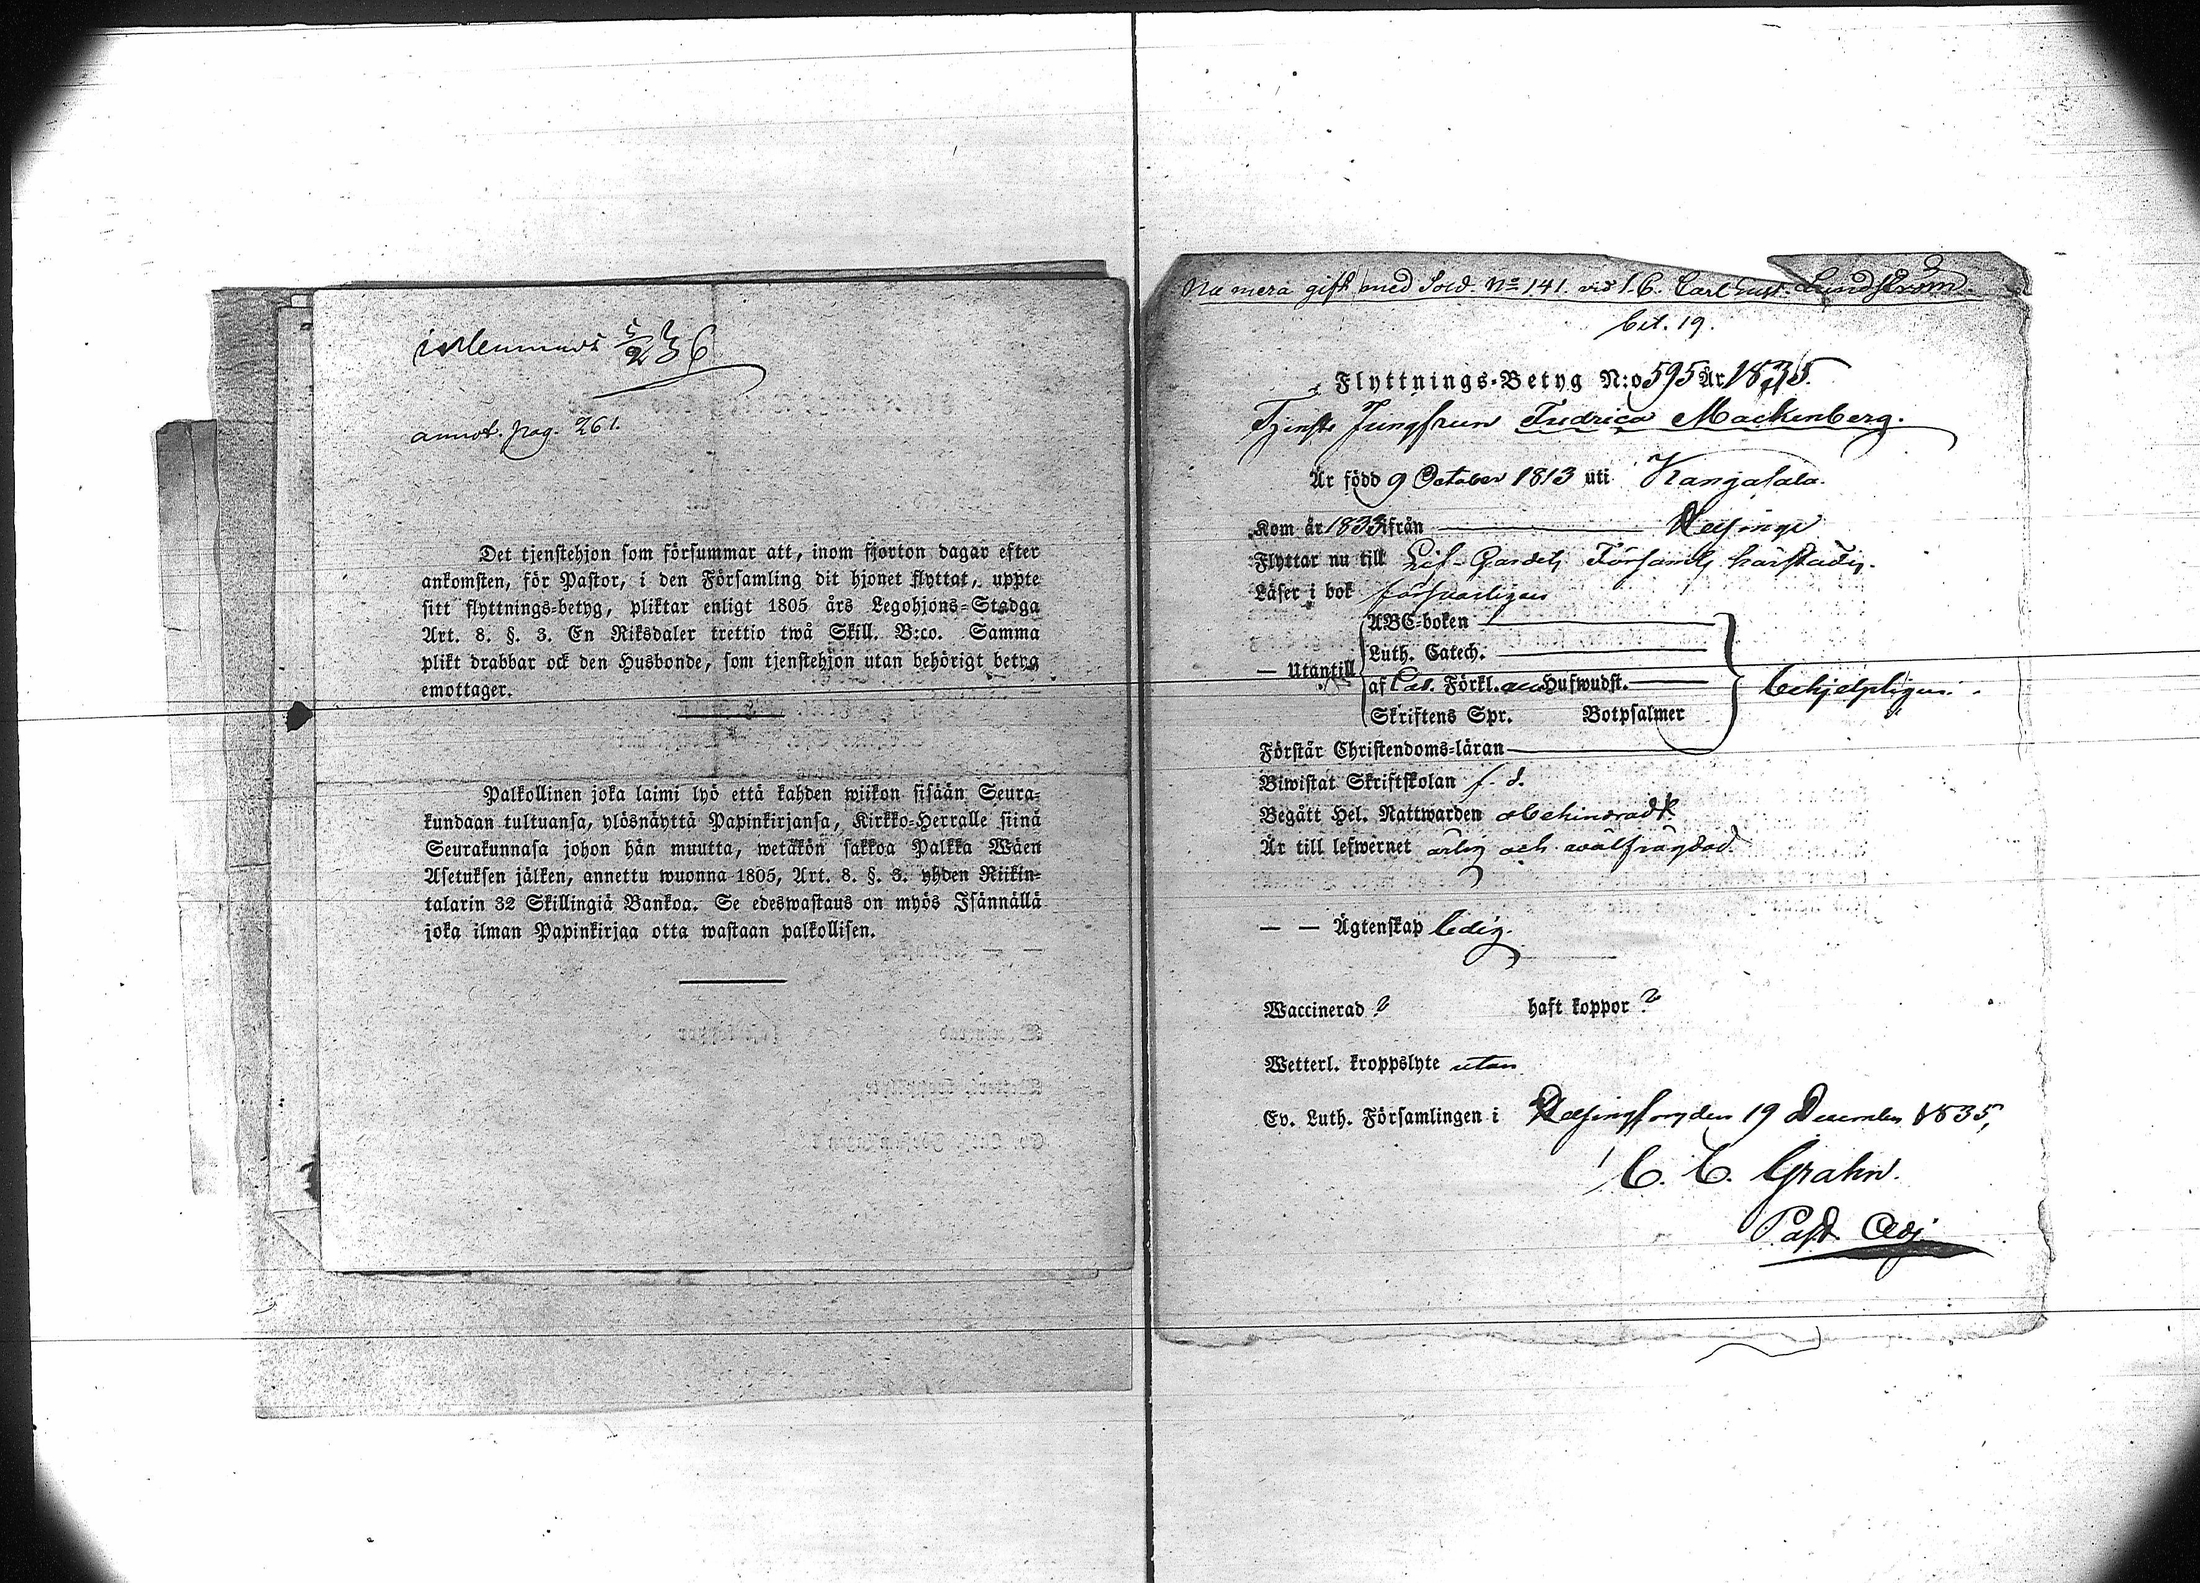 inlemnadt 5/2 36
annot. pag. 261.
Det tjenstehjon som försummar att, inom fjorton dagar efter
ankomsten, för Pastor, i den Församling dit hjonet flyttat, uppte
sitt flyttnings-betyg, pliktar enligt 1805 års Legohjons-Stadga
Art. 8. §. 3. En Riksdaler trettio twå Skill. B:co. Samma
plikt drabbar ock den Husbonde, som tjenstehjon utan behörigt betyg
emottager.
Palkollinen joka laimi lyö että kahden wiikon sisään Seura-
kundaan tultuansa, ylösnäyttä Papinkirjansa, Kirkko-Herralle siinä
Seurakunnasa johon hän muutta, wetäkön sakkoa Palkka Wäen
Asetuksen jälken, annettu wuonna 1805, Art. 8. §. 3. yhden Riikin-
talarin 32 Skillingiä Bankoa. Se edeswastaus on myös Isännällä
joka ilman Papinkirjaa otta wastaan palkollisen.
Nu mera gift med Sold. No 141. vid 1. C. Carl Gust. Lundström.
bet. 19.
Flyttnings-Betyg N:o 595 År 1835.
Tjenste Jungfrun Fredrica Mackenberg.
Är född 9 October 1813 uti Kangasala.
Kom år 1833 ifrån Helsinge
Flyttar nu till Lif-Gardets Församl. härstädes.
Läser i bok försvarligen
— Utantill
ABC-boken
Luth. Catech.
af Förkl. Hufwudst.
Skriftens Spr. Botpsalmer
behjelpligen.
Förstår Christendoms-läran
Biwistat Skriftskolan f. d.
Begått Hel. Nattwarden obehindradt
Är till lefwernet ärlig och wälfrägdad
— — Ägtenskap ledig.
Waccinerad ? haft koppor ?
Wetterl. kroppslyte utan
Ev. Luth. Församlingen i Helsingfors den 19 December 1835,
C. C. Grahn.
Past. Adj.